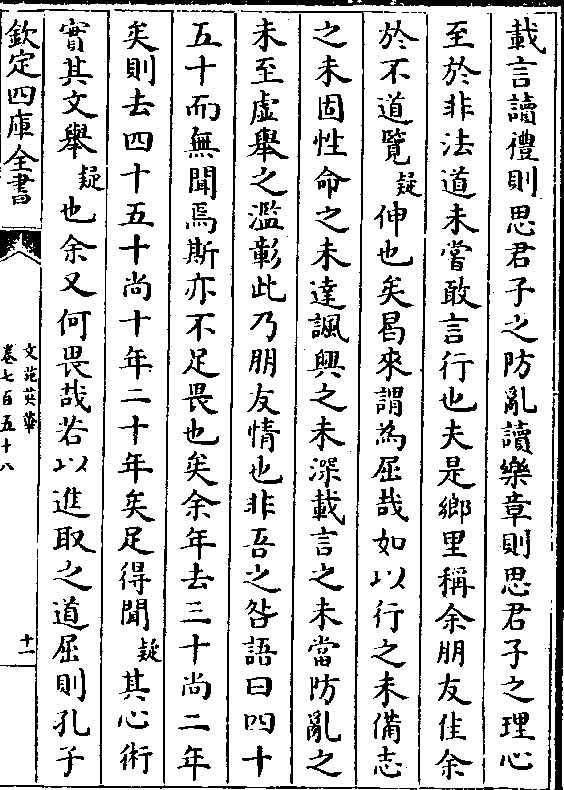 載言讀禮則思君子之防亂讀樂章則思君子之理心
至於非法道未嘗敢言行也夫是鄉里稱余朋友佳余
於不道覽疑伸也矣曷來謂為屈哉如以行之未備志
之未固性命之未達諷興之未深載言之未當防亂之
未至虛舉之濫彰此乃朋友情也非吾之咎語曰四十
五十而無聞焉斯亦不足畏也矣余年去三十尚二年
矣則去四十五十尚十年二十年矣足得聞疑其心術
實其文舉疑也余又何畏哉若以進取之道屈則孔子
欽定四庫全書
文苑英華
卷七百五十八
十一